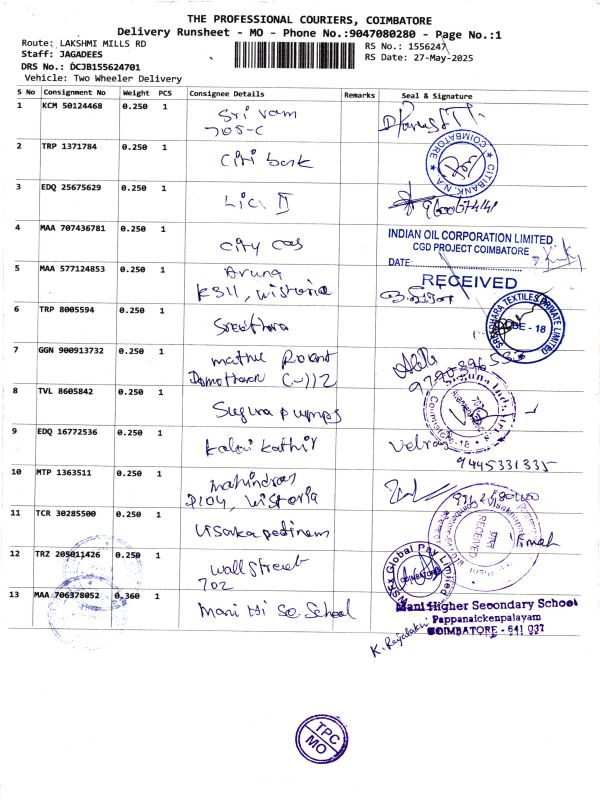 THE PROFESSIONAL COURIERS, COIMBATORE
Delivery Runsheet - MO - Phone No.:9047080280 - Page No.:1
Route: LAKSHMI MILLS RD
RS No.: 1556247
Staff: JAGADEES
RS Date: 27-May-2025
DRS No.: DCJB155624701
Vehicle: Two Wheeler Delivery
S No Consignment No Weight PCS Consignee Details Remarks Seal & Signature
1 KCM 50124468 0.250 1 Sri Vam
705-C
2 TRP 1371784 0.250 1 Citi bank
COIMBATORE CITIBANK, N.A
3 EDQ 25675629 0.250 1 LIC, II
4 MAA 707436781 0.250 1 City Gas
INDIAN OIL CORPORATION LIMITED
CGD PROJECT COIMBATORE
DATE:
5 MAA 577124853 0.250 1 Aruna
RECEIVED
6 TRP 8005594 0.250 1 Sreedhara
TEXTILES PRIVATE LIMITED
7 GGN 900913732 0.250 1
C-112
8 TVL 8605842 0.250 1 Suguna pumps
9 EDQ 16772536 0.250 1 Kalai Kathir
9445331335
10 MTP 1363511 0.250 1 Mahindras
D104, Wistoria
11 TCR 30285500 0.250 1 Visaka pedinem
RECEIVED
Vimal
12 TRZ 205011426 0.250 1 Wall Street
702
Global Pay Limited
COIMBATORE
13 MAA 706378052 0.360 1 Mani Hi Se School
Mani Higher Secondary School
Pappanaickenpalayam
COIMBATORE - 641 037
TPC
MO